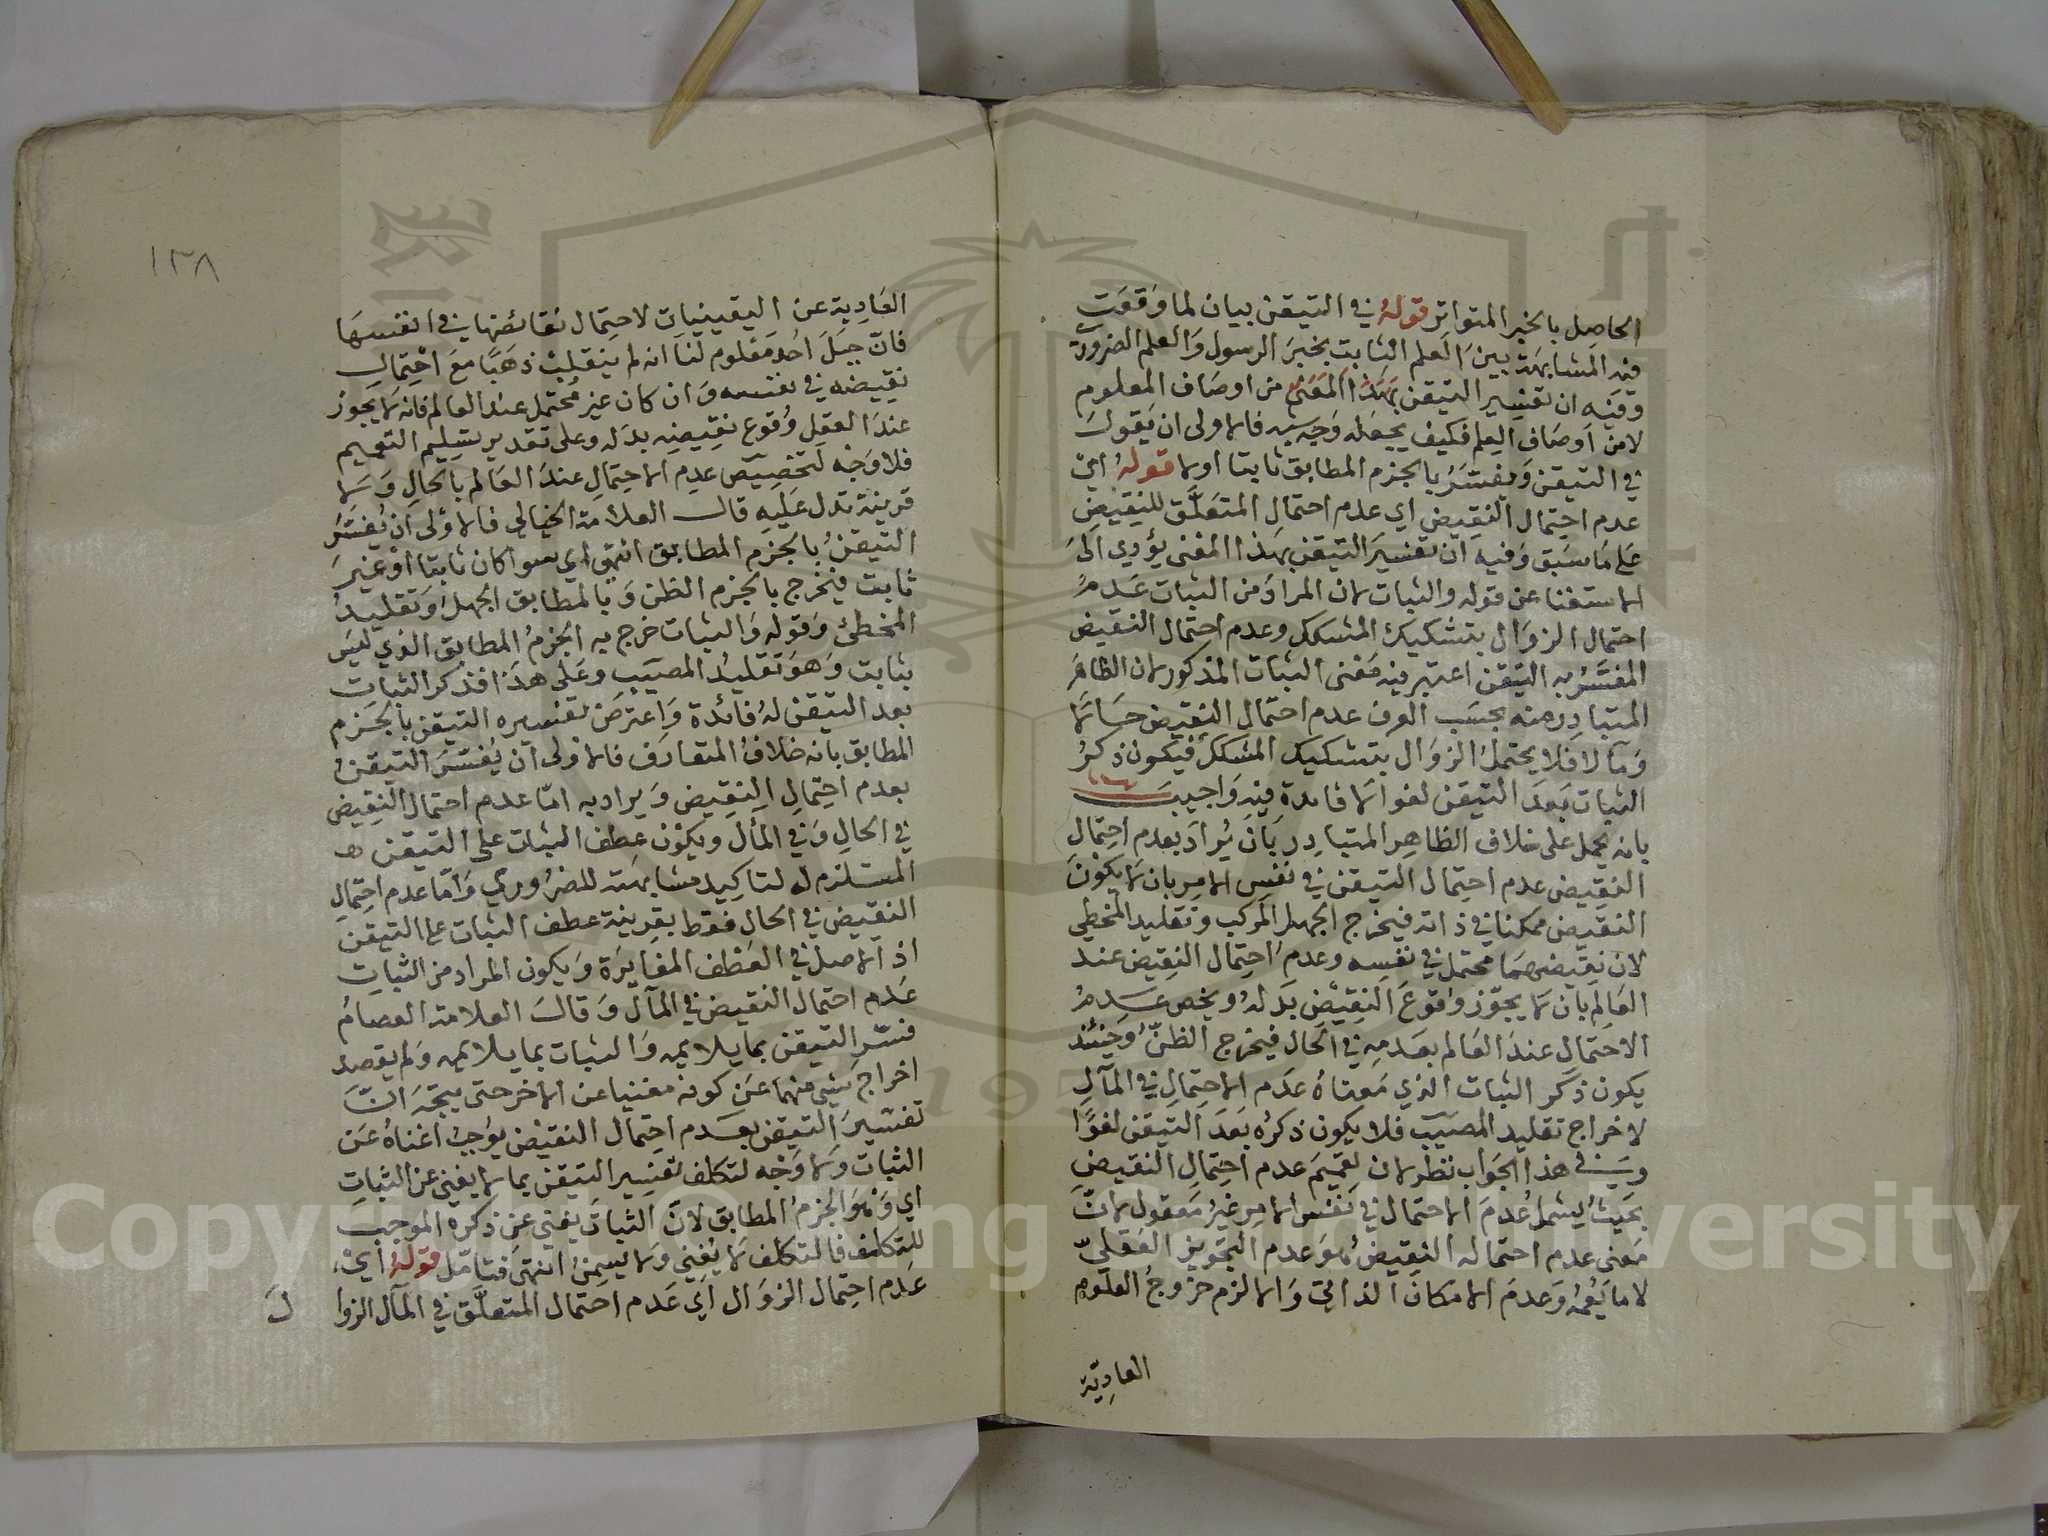 الحاصل بالخبر المتواتر قوله في التيقن بيان لما وقعت
فيه المشابهة بين العلم الثابت بخبر الرسول والعلم الضروري
وفيه ان تفسير التيقن بهذا المعنى من اوصاف المعلوم
لا من اوصاف العلم فكيف يجعله وجه شبه فالاولى ان يقول
في التيقن ويفسر بالجزم المطابق ثابتا اولا قوله اي
عدم احتمال النقيض اي عدم احتمال المتعلق للنقيض
على ما سبق وفيه ان تفسير التيقن بهذا المعنى يؤدي الى
الاستغنا عن قوله والثبات لان المراد من الثبات عدم
احتمال الزوال بتشكيك المشكك وعدم احتمال النقيض
المفسر به التيقن اعتبر فيه معنى الثبات المذكور لان الظاهر
المتبادر منه بحسب العرف عدم احتمال النقيض حالا
ومآلا فلا يحتمل الزوال بتشكيك المشكك فيكون ذكر
الثبات بعد التيقن لغوا لا فائدة فيه واجيب
بانه يحمل على خلاف الظاهر المتبادر بان يراد بعدم احتمال
النقيض عدم احتمال التيقن في نفس الامر بان لا يكون
النقيض ممكنا في ذاته فيخرج الجهل المركب وتقليد المخطي
لان نقيضهما محتمل في نفسه وعدم احتمال النقيض عند
العالم بان لا يجوز وقوع النقيض بدله ويخص عدم
الاحتمال عند العالم بعدمه في الحال فيخرج الظن وحينئذ
يكون ذكر الثبات الذي معناه عدم الاحتمال في المآل
لاخراج تقليد المصيب فلا يكون ذكره بعد التيقن لغوا
وفي هذا الجواب نظر لان تعميم عدم احتمال النقيض
بحيث يشمل عدم الاحتمال في نفس الامر غير معقول لان
معنى عدم احتماله النقيض هو عدم التجويز العقلي
لا ما يعمه وعدم الامكان الذاتي والا لزم خروج العلوم
العادية
١٣٨
العادية عن اليقينيات لاحتمال نقائضها في انفسها
فان جبل احد معلوم لنا انه لم ينقلب ذهبا مع احتمال
نقيضه في نفسه وان كان غير محتمل عند العالم فانه لا يجوز
عند العقل وقوع نقيضه بدله وعلى تقدير تسليم التعميم
فلا وجه لتخصيص عدم الاحتمال عند العالم بالحال ولا
قرينة تدل عليه قال العلامة الخيالي فالاولى ان يفسر
التيقن بالجزم المطابق انتهى اي سوا كان ثابتا او غير
ثابت فيخرج بالجزم الظن وبالمطابق الجهل وتقليد
المخطئ وقوله والثبات خرج به الجزم المطابق الذي ليس
بثابت وهو تقليد المصيب وعلى هذا فذكر الثبات
بعد التيقن له فائدة واعترض تفسيره التيقن بالجزم
المطابق بانه خلاف المتعارف فالاولى ان يفسر التيقن
بعدم احتمال النقيض ويراد به اما عدم احتمال النقيض
في الحال وفي المأل ويكون عطف الثبات على التيقن
المستلزم له لتاكيد مشابهته للضروري واما عدم احتمال
النقيض في الحال فقط بقرينة عطف الثبات على التيقن
اذ الاصل في العطف المغايرة ويكون المراد من الثبات
عدم احتمال النقيض في المآل وقال العلامة العصام
فسر التيقن بما يلايمه والثبات بما يلايمه ولم يقصد
اخراج شي منهما عن كونه مغنيا عن الاخر حتى يتجه ان
تفسير التيقن بعدم احتمال النقيض يوجب اغناه عن
الثبات ولا وجه لتكلف تفسير التيقن بما لا يغني عن الثبات
اي وهو الجزم المطابق لان الثبات يغني عن ذكره الموجب
للتكلف فالتكلف لا يغني ولا يسمن انتهى فتامل قوله اي
عدم احتمال الزوال اي عدم احتمال المتعلق في المآل الزوا
ل